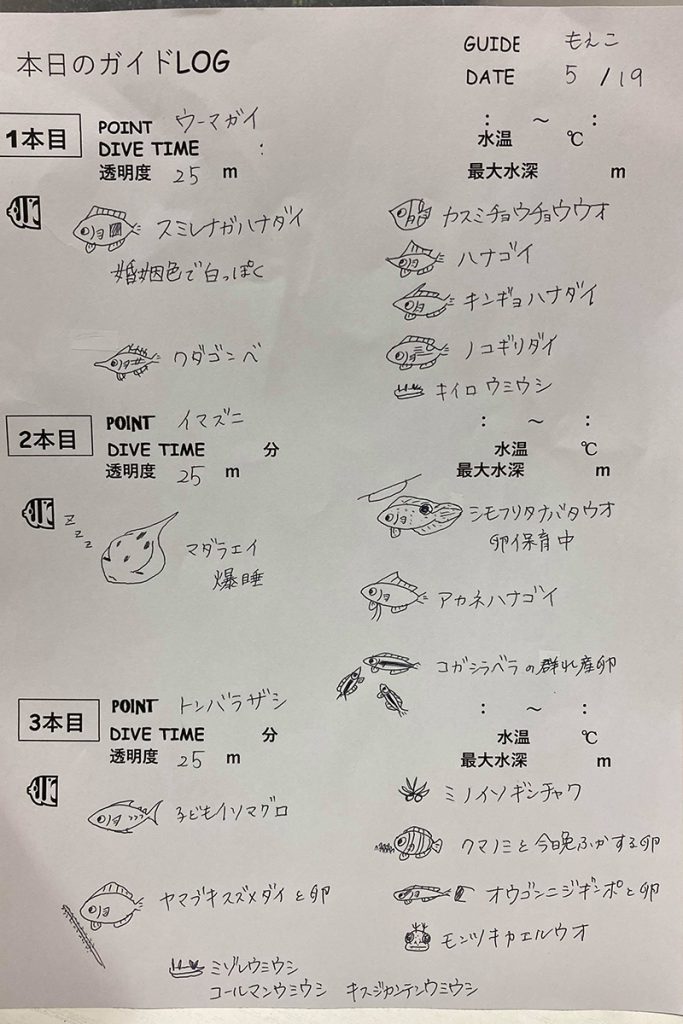 本日のガイドLOG
GUIDE もえこ
DATE 5 / 19
1本目
POINT ウーマガイ
DIVE TIME :
透明度 25 m
: ～ :
水温 ℃
最大水深 m
スミレナガハナダイ
婚姻色で白っぽく
クダゴンベ
カスミチョウチョウウオ
ハナゴイ
キンギョハナダイ
ノコギリダイ
キイロウミウシ
2本目
POINT イマズニ
DIVE TIME 分
透明度 25 m
: ～ :
水温 ℃
最大水深 m
z z z
マダラエイ
爆睡
シモフリタナバタウオ
卵保育中
アカネハナゴイ
コガシラベラの群れ産卵
3本目
POINT トンバラザシ
DIVE TIME 分
透明度 25 m
: ～ :
水温 ℃
最大水深 m
子どもイソマグロ
ヤマブキスズメダイと卵
ミゾレウミウシ
コールマンウミウシ キスジカンテンウミウシ
ミノイソギンチャク
クマノミと今日晩ふかする卵
オウゴンニジギンポと卵
モンツキカエルウオ